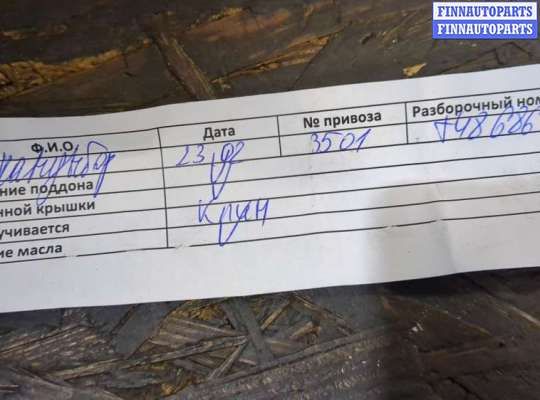 FINNAUTOPARTS
FINNAUTOPARTS
Ф.И.О. Дата № привоза Разборочный ном
23.02 3501 т48686
ние поддона
нной крышки
учивается
ие масла